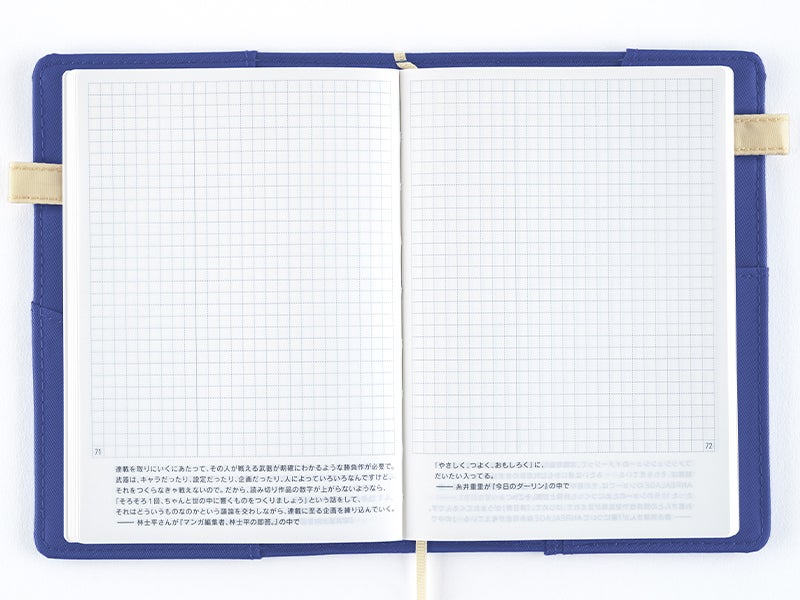 71
連載を取りにいくにあたって、その人が戦える武器が明確にわかるような勝負作が必要で。
武器は、キャラだったり、設定だったり、企画だったり、人によっていろいろなんですけど、
それをつくらなきゃ戦えないので。だから、読み切り作品の数字が上がらないようなら、
「そろそろ1回、ちゃんと世の中に響くものをつくりましょう」という話をして、
それはどういうものなのかという議論を交わしながら、連載に至る企画を練り込んでいく。
—— 林士平さんが『マンガ編集者、林士平の即答。』の中で
72
「やさしく、つよく、おもしろく」に、
だいたい入ってる。
—— 糸井重里が『今日のダーリン』の中で